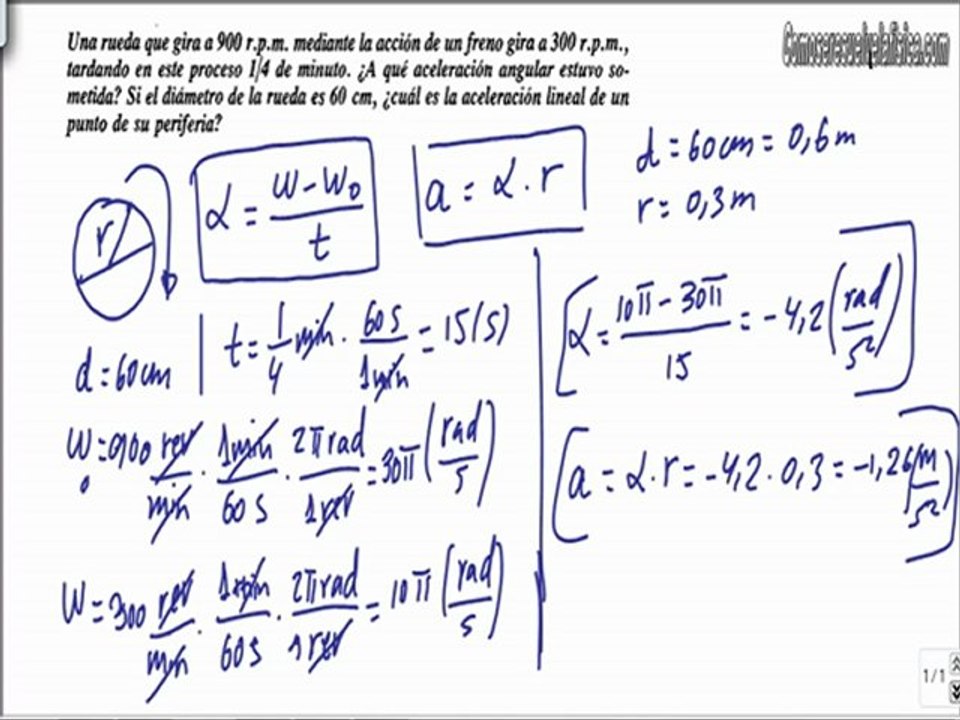 Una rueda que gira a 900 r.p.m. mediante la acción de un freno gira a 300 r.p.m.,
tardando en este proceso 1/4 de minuto. ¿A qué aceleración angular estuvo so-
metida? Si el diámetro de la rueda es 60 cm, ¿cuál es la aceleración lineal de un
punto de su periferia?
Comoseresuelvelafisica.com
r
α = (w - w₀)/t
a = α · r
d = 60cm = 0,6m
r = 0,3m
d = 60cm
t = 1/4 min · 60s/1min = 15(s)
w₀ = 900 rev/min · 1min/60s · 2π rad/1rev = 30π (rad/s)
w = 300 rev/min · 1min/60s · 2π rad/1rev = 10π (rad/s)
α = (10π - 30π)/15 = -4,2 (rad/s²)
a = α · r = -4,2 · 0,3 = -1,26 (m/s²)
1/1